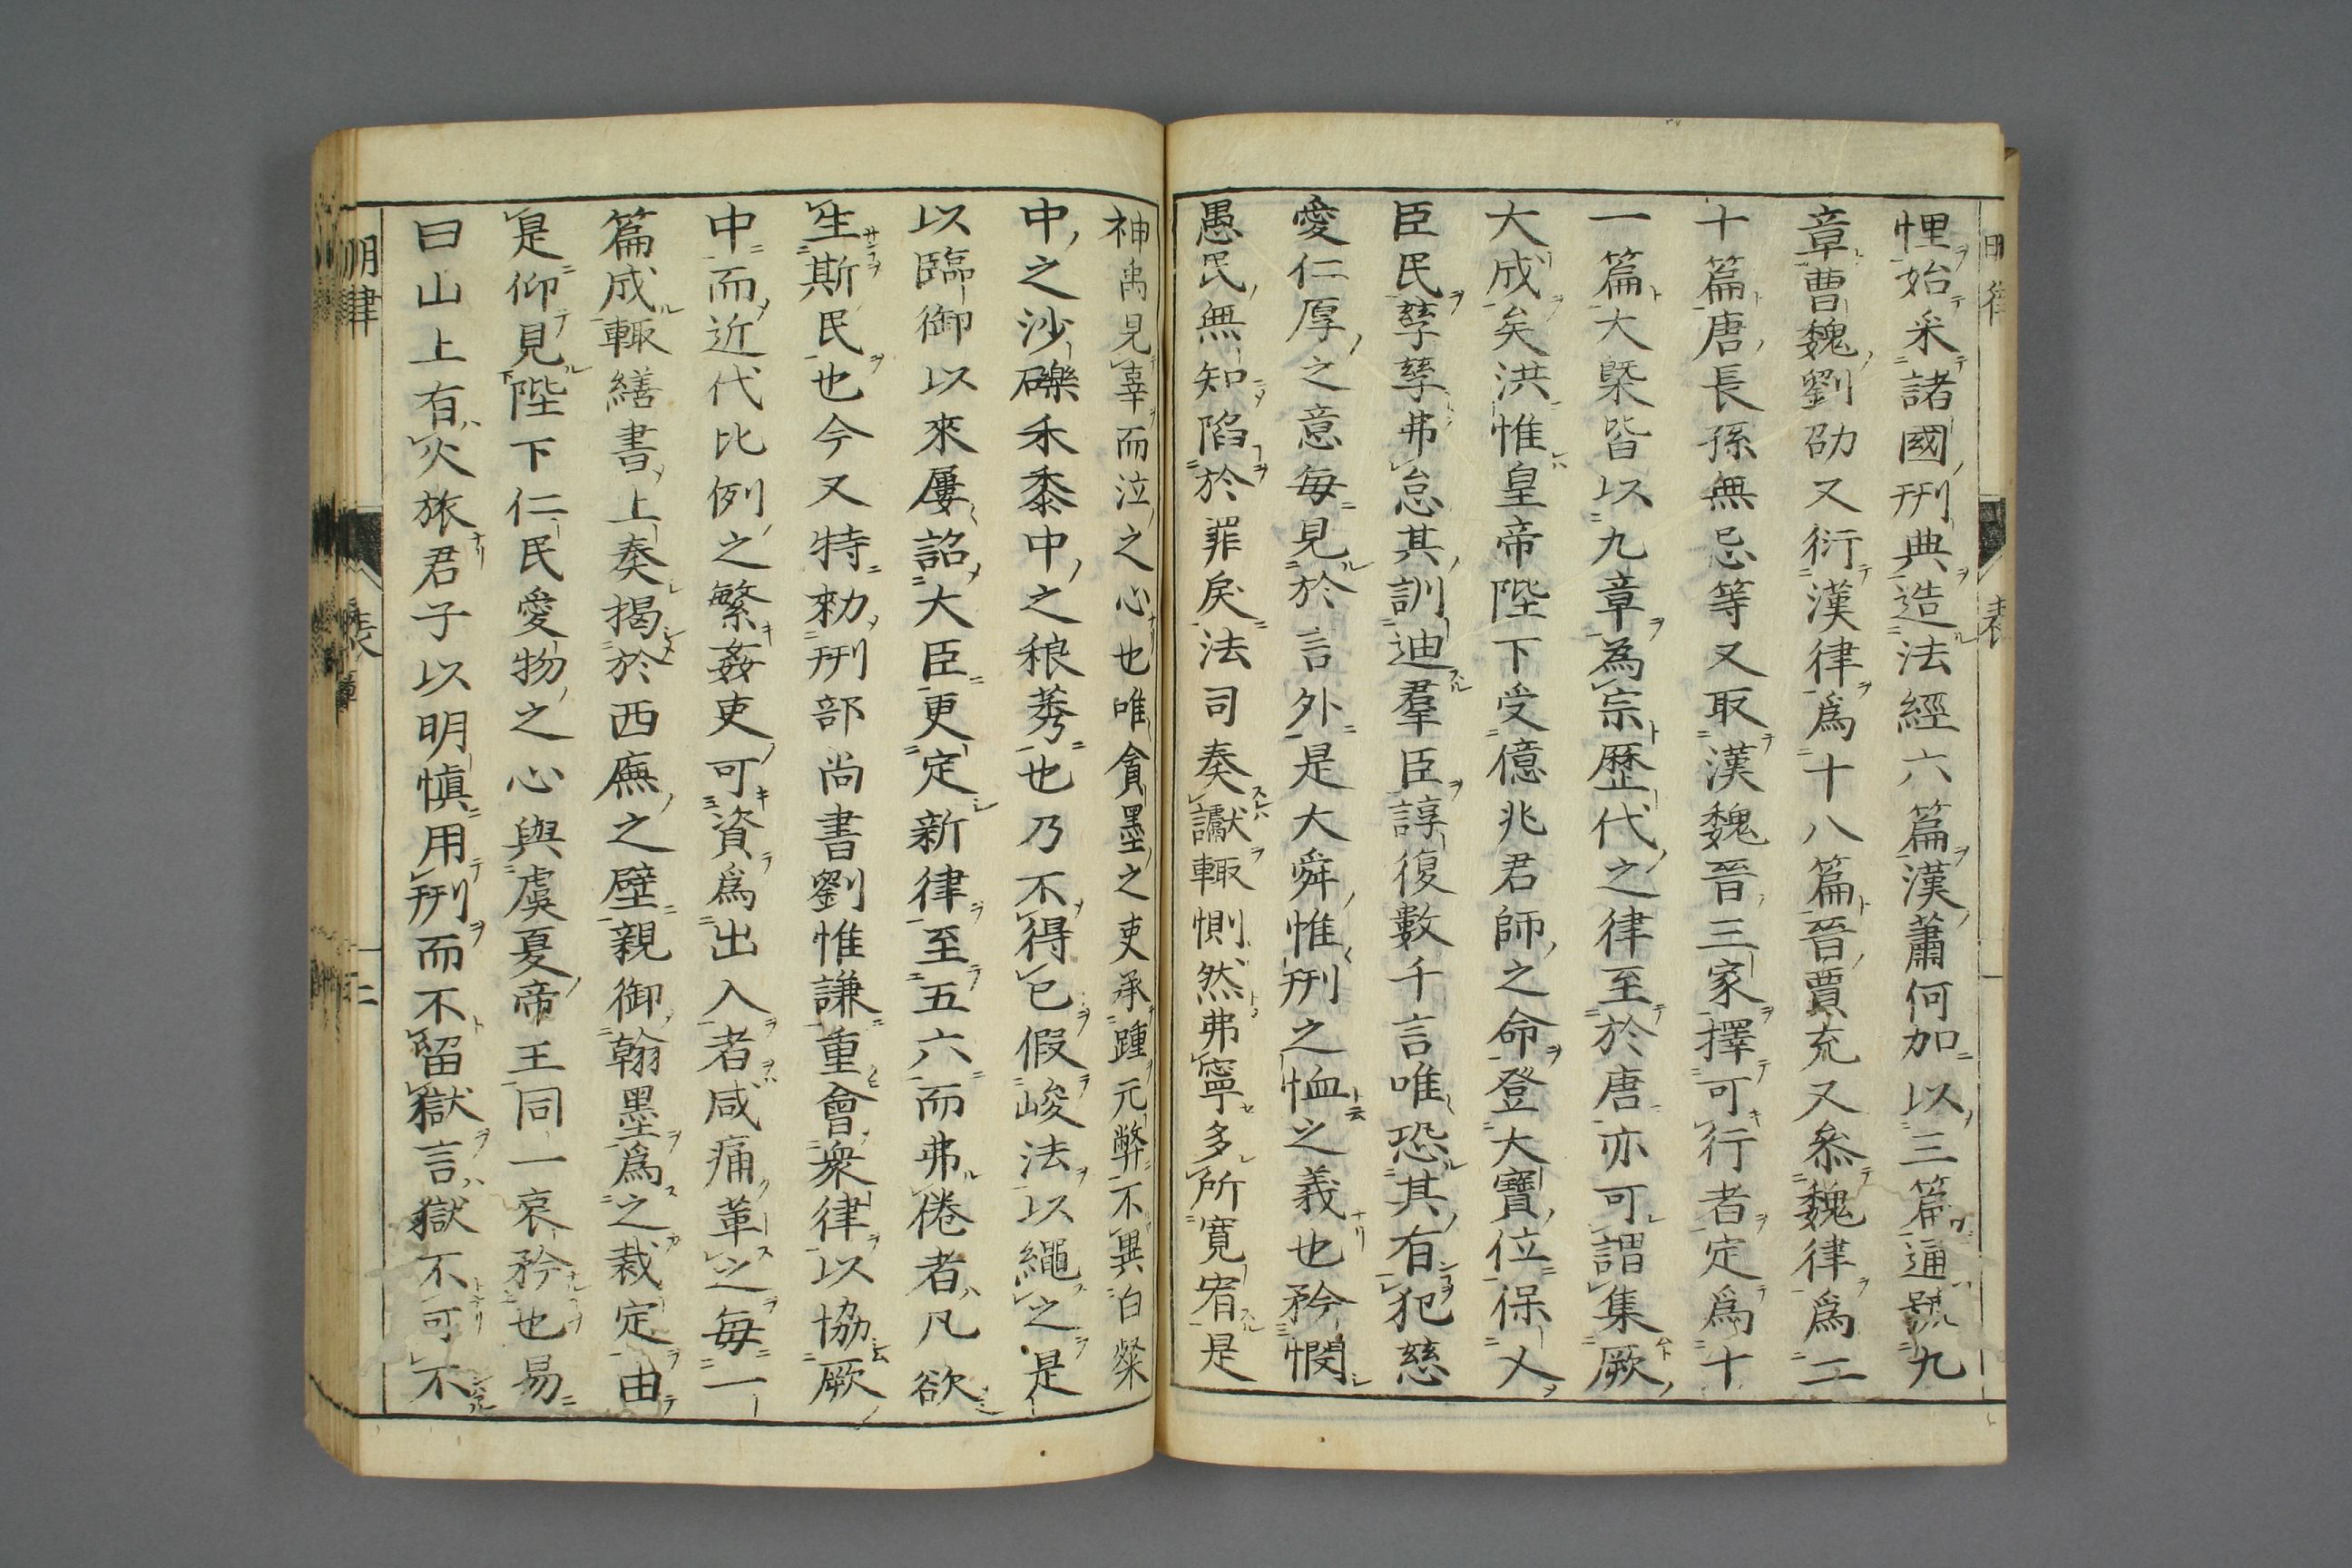 悝始采諸國刑典造法經六篇漢蕭何加以三篇通號九
章曹魏劉劭又衍漢律爲十八篇晉賈充又叅魏律爲二
十篇唐長孫無忌等又取漢魏晉三家擇可行者定爲十
一篇大槩皆以九章為宗歷代之律至於唐亦可謂集厥
大成矣洪惟皇帝陛下受億兆君師之命登大寶位保乂
臣民孳孳弗怠其訓迪羣臣諄復數千言唯恐其有犯慈
愛仁厚之意每見於言外是大舜惟刑之恤之義也矜憫
愚民無知陷於罪戾法司奏讞輒惻然弗寧多所寬宥是
神禹見辜而泣之心也唯貪墨之吏承踵元弊不異白粲
中之沙礫禾黍中之稂莠也乃不得已假峻法以繩之是
以臨御以來屢詔大臣更定新律至五六而弗倦者凡欲
生斯民也今又特勅刑部尚書劉惟謙重會衆律以協厥
中而近代比例之繁姦吏可資爲出入者咸痛革之每一
篇成輒繕書上奏揭於西廡之壁親御翰墨爲之裁定由
是仰見陛下仁民愛物之心與虞夏帝王同一哀矜也易
曰山上有火旅君子以明愼用刑而不留獄言獄不可不
明律
表
二